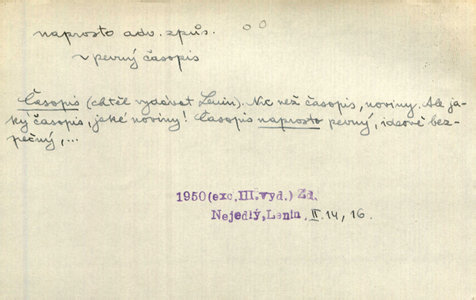 naprosto adv. způs. o o
v pevný časopis
Časopis (chtěl vydávat Lenin). Nic než časopis, noviny. Ale ja-
ký časopis, jaké noviny! Časopis naprosto pevný, ideově bez-
pečný,...
1950(exc.III.vyd.) Zd.
Nejedlý,Lenin. II 14, 16.